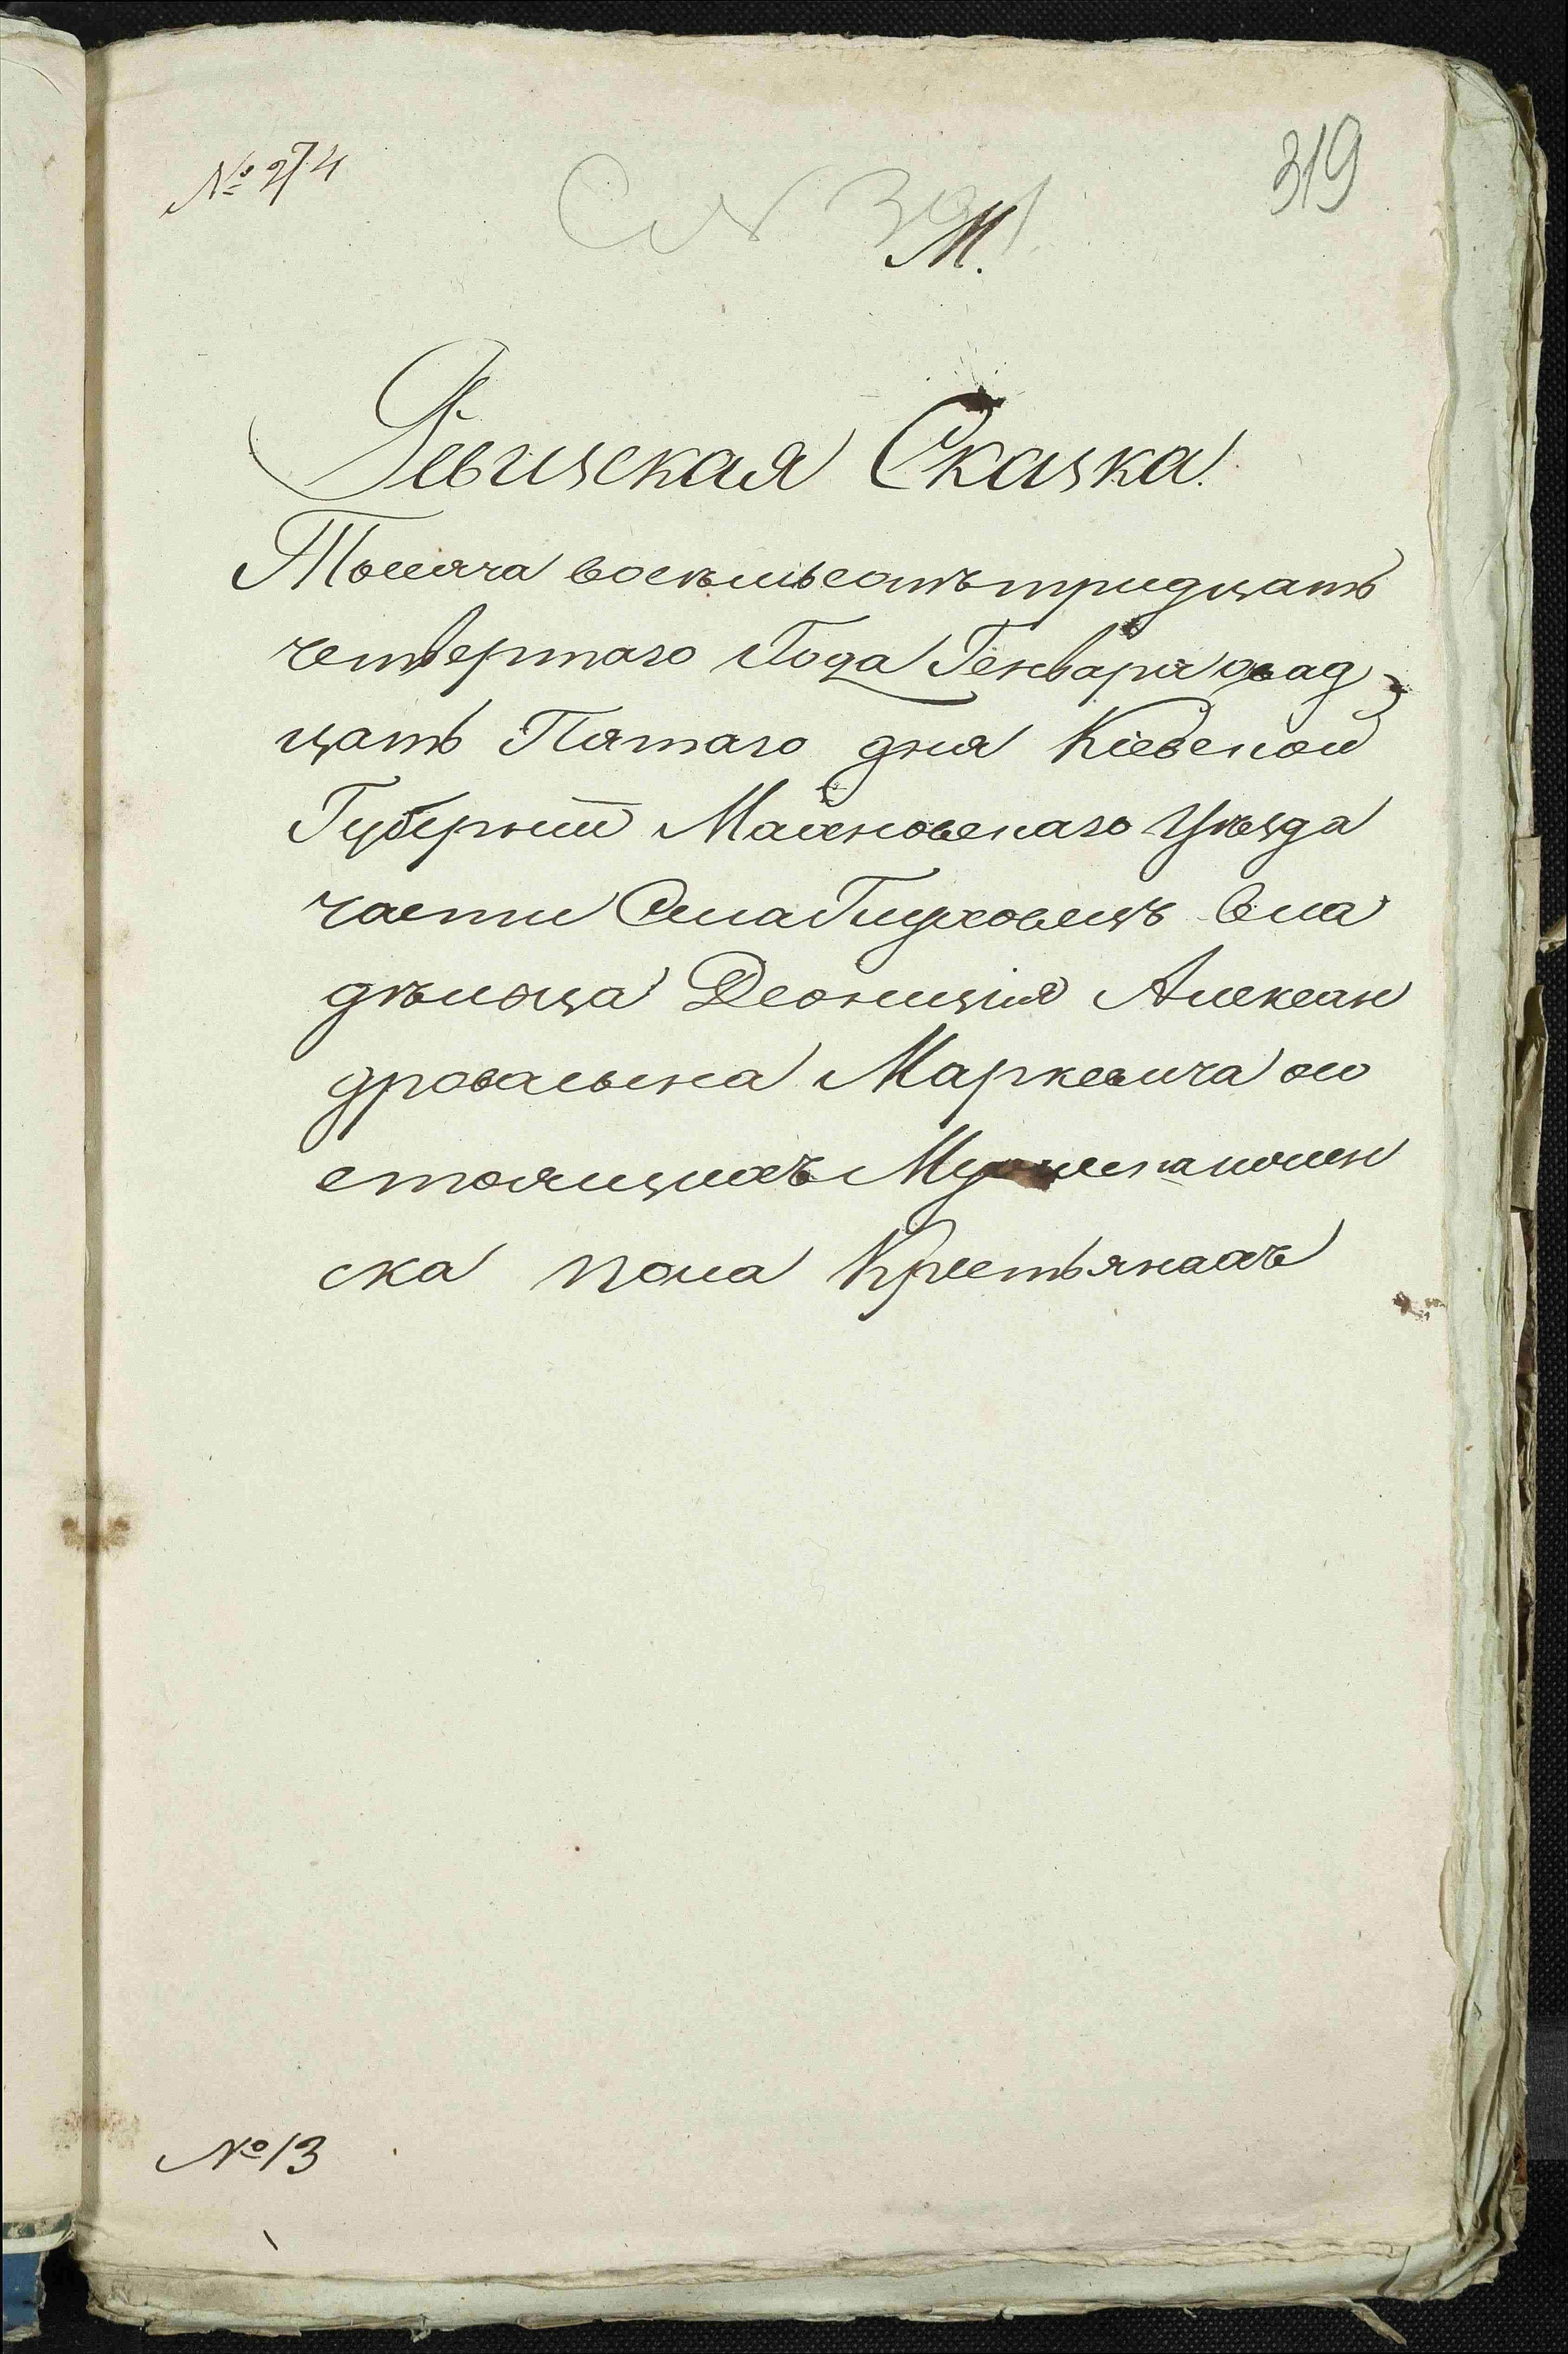 № 274
319
М.
Ревизская Сказка.
Тысяча восемьсотъ тридцать
четвертаго Года Генваря двад
цать Пятаго дня Кіевской
Губерніи Махновскаго Уѣзда
части Села Глуховецъ вла
дѣльца Деонизія Алексан
дрова сына Маркевича о со
стоящихъ Мужеска и женс
ка пола Крестьянахъ
№ 13